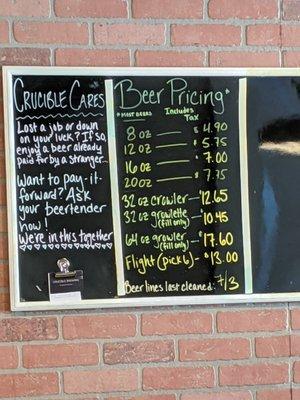 Crucible Cares
Lost a job or down
on your luck? If so,
enjoy a beer already
paid for by a stranger...
Want to pay-it-
forward? Ask
your beertender
how!
We're in this together
Beer Pricing*
*Most Beers
Includes
Tax
8 oz — $4.90
12 oz — $5.75
16 oz — $7.00
20 oz — $7.75
32 oz crowler — $12.65
32 oz growlette — $10.45
(fill only)
64 oz growler — $17.60
(fill only)
Flight (pick 6) — $13.00
Beer lines last cleaned: 7/3